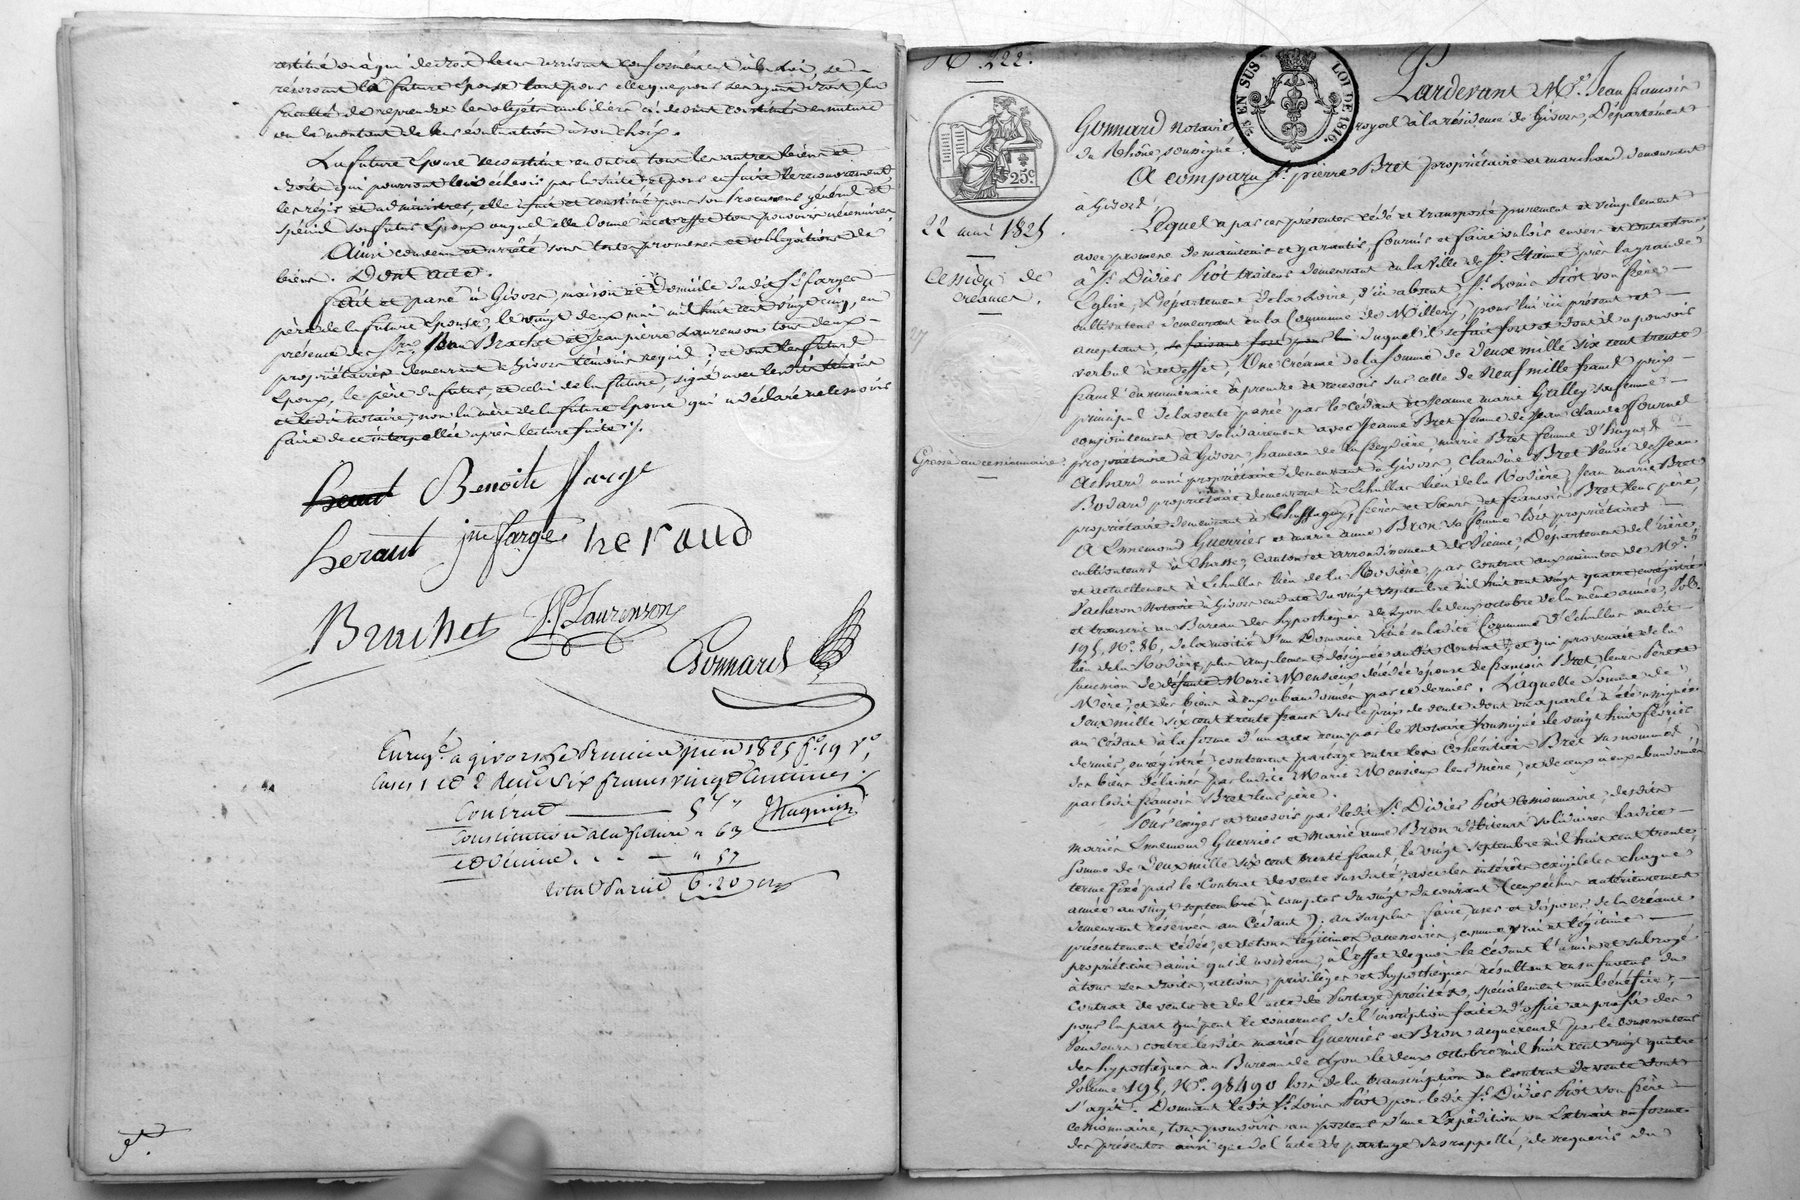 restitué ou à qui de droit le cas arrivant conformément à la loi, se
réservant la future épouse tant pour elle que pour ses ayant droit, la
faculté de reprendre les objets mobiliers ci dessus constitués en nature
ou le montant de leur évaluation à son choix.
La future épouse se constitue en outre tous les autres biens et
droits qui pourront lui échoir par la suite; et pour en faire le recouvrement,
les régir et administrer, elle fait et constitue pour son procureur général et
spécial son futur époux auquel elle donne à cet effet tous pouvoirs nécessaires.
Ainsi convenu et arrêté sous toutes promesses et obligations de
biens. Dont acte.
Fait et passé à Givors, maison et domicile dudit Sr. farge
père de la future épouse, le vingt deux mai mil huit cent vingt cinq, en
présence des Srs. Jean Brachet et Jean pierre Laurenson tous deux
propriétaires demeurant à Givors témoins requis; et ont les futurs
époux, le père du futur, et celui de la future, signé avec les dits témoins
et le dit notaire, non la mère de la future épouse qui a déclaré ne le savoir
faire de ce interpellée après lecture faite.
heraut Benoite farge
heraut jne farge heraud
Brachet J.P. Laurenson
Gonnard
Enregé. a givors le premier juin 1825 fo. 19 vo.
cases 1 et 2 reçu six francs vingt centimes.
Contrat 5
Constitution à la future " 63
et dixième " 57
total du reçu 6.20
No. 222.
EN SUS LOI DE 1816.
25 c
22 mai 1825.
Cession de
créances.
27
Grosse au cessionnaire
Pardevant Me. Jean françois
Gonnard notaire royal à la résidence de Givors, Département
du Rhône, soussigné.
A comparu Sr. pierre Bret propriétaire et marchand demeurant
à Givors.
Lequel a par ces présentes cédé et transporté purement et simplement
avec promesse de maintenir et garantir, fournir et faire valoir envers et contre tous,
à Sr. Didier Piot traiteur demeurant en la ville de St. Etienne près la grande
Eglise, Département de la Loire, d'ici absent, Sr. Louis Piot son frère
cultivateur demeurant en la Commune de Millery, pour lui ici présent et
acceptant, se faisant fort pour lui duquel il se fait fort et dont il a pouvoir
verbal à cet effet, Une créance de la somme de deux mille six cent trente
francs en numéraire à prendre et recevoir sur celle de neuf mille francs prix
principal de la vente passée par le cédant et Jeanne marie Galley sa femme
conjointement et solidairement avec Jeanne Bret femme de Jean Claude Fournel
propriétaire à Givors, hameau de la freydière, marie Bret femme d'hugues
Achard aussi propriétaire demeurant à Givors, Claudine Bret veuve de Jean
Bodard propriétaire demeurant à Echallas lieu de la Rodière, Jean marie Bret
propriétaire demeurant à Chassagny, frères et sœurs, et françois Bret leur père,
A Ennemond Guerrier et marie anne Bron sa femme tous propriétaires
cultivateurs à Chasse, Canton et arrondissement de Vienne, Département de l'Isère,
et actuellement à Echallas lieu de la Rodière, par contrat aux minutes de Me.
Vacheron notaire à Givors en date du vingt septembre mil huit cent vingt quatre enregistré
et transcrit au Bureau des hypothèques de Lyon le deux octobre de la même année, Vol.
195, No. 86, de la moitié d'un Domaine situé en la dite Commune d'Echallas au dit
lieu de la Rodière, plus amplement désigné au dit Contrat, et qui provenait de la
succession de défunte Marie Monsieux décédée épouse de françois Bret, leurs père et
Mère, et des biens à eux abandonnés par ce dernier. Laquelle somme de
deux mille six cent trente francs sur le prix de vente dont on a parlé a été assignée
au Cédant à la forme d'un acte reçu par le Notaire soussigné le vingt huit février
dernier, enregistré, contenant partage entre les Cohéritiers Bret susnommés
des biens délaissés par ladite Marie Monsieux leur mère, et de ceux à eux abandonnés
par ledit françois Bret leur père.
Pour exiger et recevoir par ledit Sr. Didier Piot Cessionnaire, desdits
mariés Ennemond Guerrier et Marie anne Bron débiteurs solidaires ladite
somme de deux mille six cent trente francs, le vingt septembre mil huit cent trente,
terme fixé par le Contrat de vente susdaté, avec les intérêts exigibles chaque
année au vingt septembre à compter du vingt du courant (ceux échus antérieurement
demeurant réservés au Cédant); au surplus faire, user et disposer de la créance
présentement cédée, et de tous légitimes accessoires, comme vrai et légitime
propriétaire ainsi qu'il avisera; à l'effet de quoi le cédant l'a mis et subrogé
à tous ses droits, actions, privilèges et hypothèques résultant en sa faveur du
Contrat de vente et de l'acte de Partage précités, spécialement au bénéfice,
pour la part qui peut le concerner de l'inscription faite d'office au profit des
Vendeurs contre lesdits mariés Guerrier et Bron acquéreurs, par le conservateur
des hypothèques au Bureau de Lyon le deux octobre mil huit cent vingt quatre
Volume 195, No. 98490 lors de la transcription du Contrat de vente dont
s'agit. Donnant le dit Sr. Louis Piot pour le dit Sr. Didier Piot son frère
cessionnaire, tous pouvoirs au porteur d'une Expédition ou Extrait en forme
des présentes ainsi que de l'acte de partage susrappellé, de requérir du